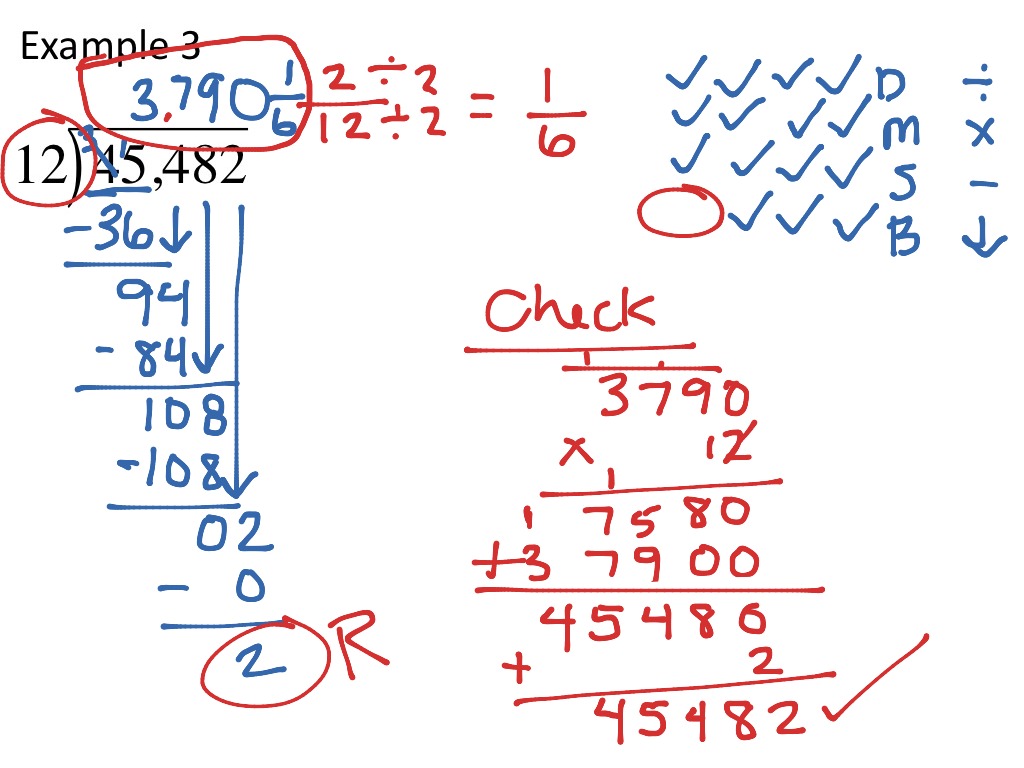 Example 3
3,790 1/6
2 ÷ 2 / 12 ÷ 2 = 1/6
12)45,482
-36
94
-84
108
-108
02
- 0
2 R
✓ ✓ ✓ ✓ D ÷
✓ ✓ ✓ ✓ M x
✓ ✓ ✓ ✓ S -
✓ ✓ ✓ B ↓
Check
1 1
3790
x 12
1 1
7580
+37900
45480
+ 2
45482 ✓